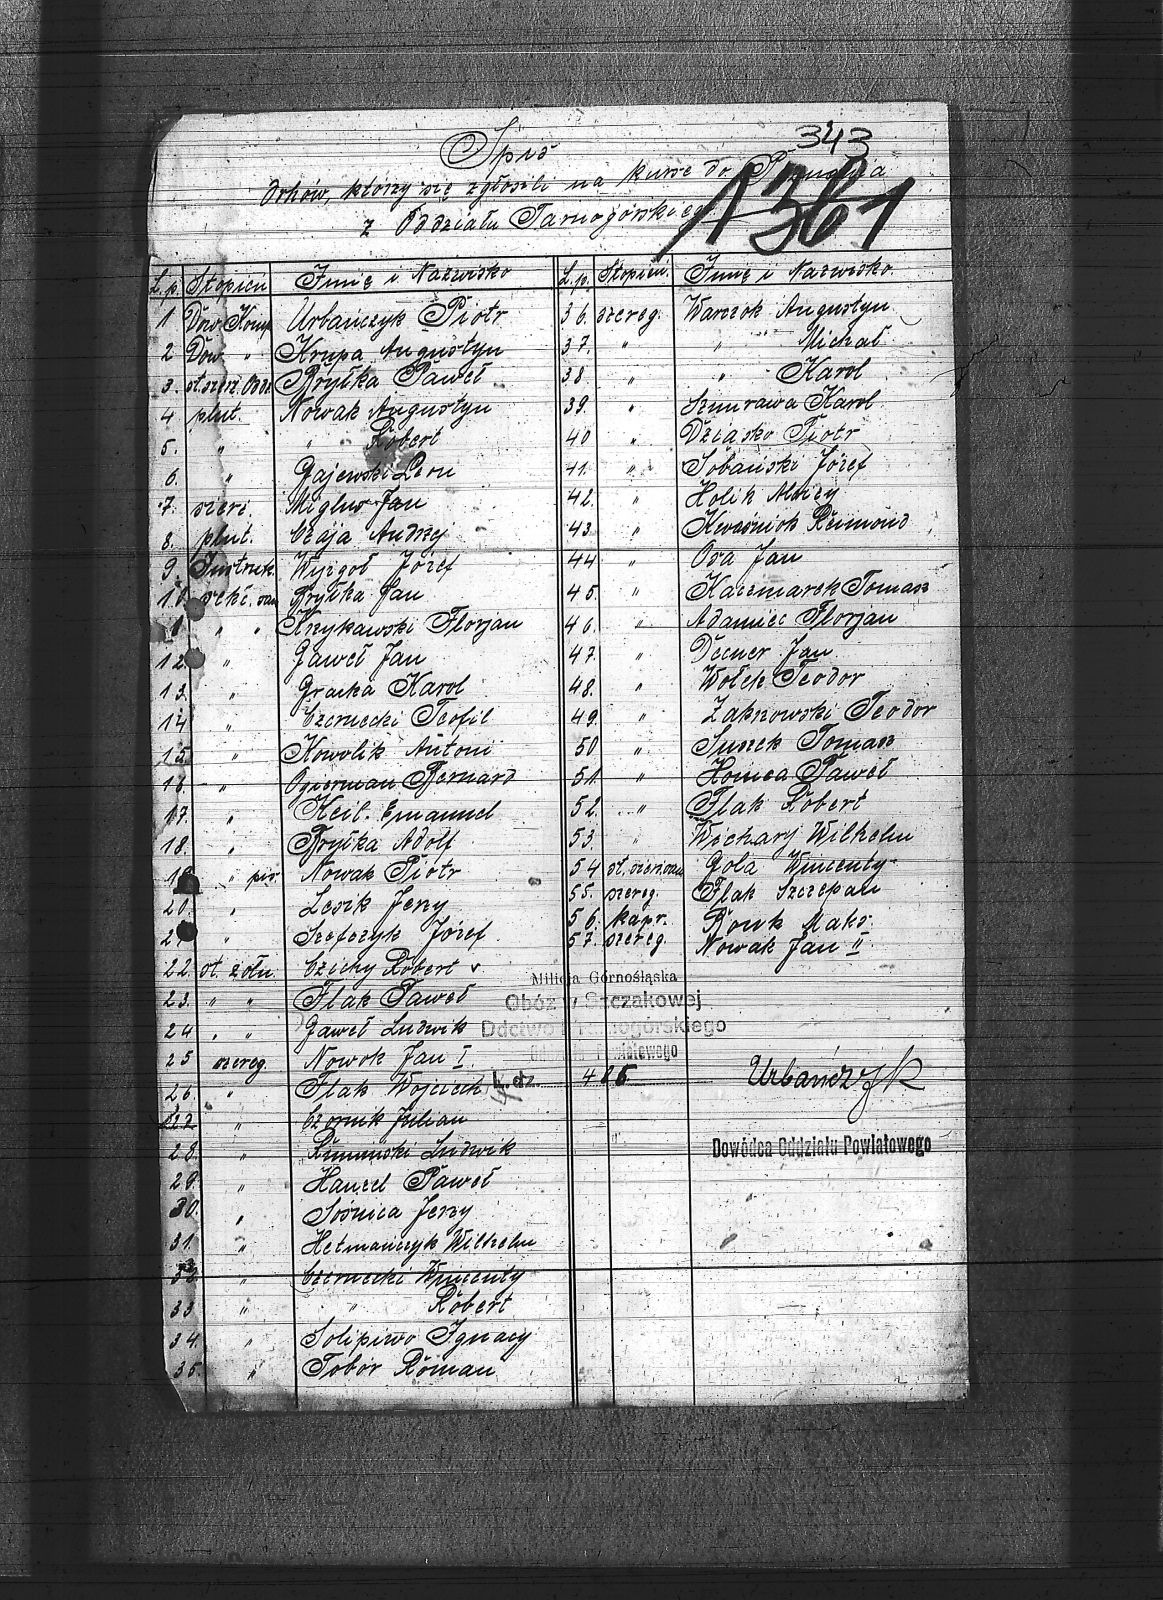 343
Spis
Druhów, którzy się zgłosili na kurs do
1361
z Oddziału Tarnogórskiego
L.p. Stopień Imię i Nazwisko
1 Dow. Komp. Urbańczyk Piotr
2 Dow. " Krupa Augustyn
3. st. sierż. Bryłka Paweł
4 plut. Nowak Augustyn
5. " " Robert
6. " Gajewski Leon
7. sierż. Miglus Jan
8. plut. Czaja Andrzej
9 Instruk. Wyzgoł Józef
10. sekc. san. Bryłka Jan
11 " " Krzykawski Florjan
12. " Gaweł Jan
13. " Gracka Karol
14 " Czernecki Teofil
15 " Kowolik Antoni
16. " Ogierman Bernard
17. " Keil. Emanuel
18. " Bryłka Adolf
19 " Nowak Piotr
20. " Lesik Jerzy
21 " Szefczyk Józef
22. st. żołn. Czichy Robert
23. " " Flak Paweł
24 " " Gaweł Ludwik
25 szereg. Nowok Jan I
26. " Flak Wojciech
27 " Czornik Juljan
28. " Rumiński Ludwik
29. " Hanzel Paweł
30. " Sośnica Jerzy
31. " Hetmańczyk Wilhelm
32 " Czernecki Wincenty
33 " " Robert
34. " Solipiwo Ignacy
35. " Tobor Roman
L.p. Stopień. Imię i Nazwisko
36. szereg. Warczok Augustyn
37. " " Michał
38 " " Karol
39. " Szmrawa Karol
40 " Dziasko Piotr
41. " Sobański Józef
42. " Holik Alojzy
43. " Kwaśniok Reimond
44 " Osa Jan
45. " Kaczmarek Tomasz
46. " Adamiec Florjan
47. " Decner Jan
48. " Wołek Teodor
49. " Żaknowski Teodor
50 " Suszek Tomasz
51. " Homca Paweł
52. " Flak Robert
53. " Wichary Wilhelm
54 st. sierż. Gola Wincenty
55. szereg. Flak Szczepan
56. kapr. Bonk Maks.
57. szereg. Nowak Jan II
Milicja Górnośląska
Obóz w Szczakowej
Ddctwo Tarnogórskiego
Oddziału Powiatowego
L. dz. 405
Urbańczyk
Dowódca Oddziału Powiatowego